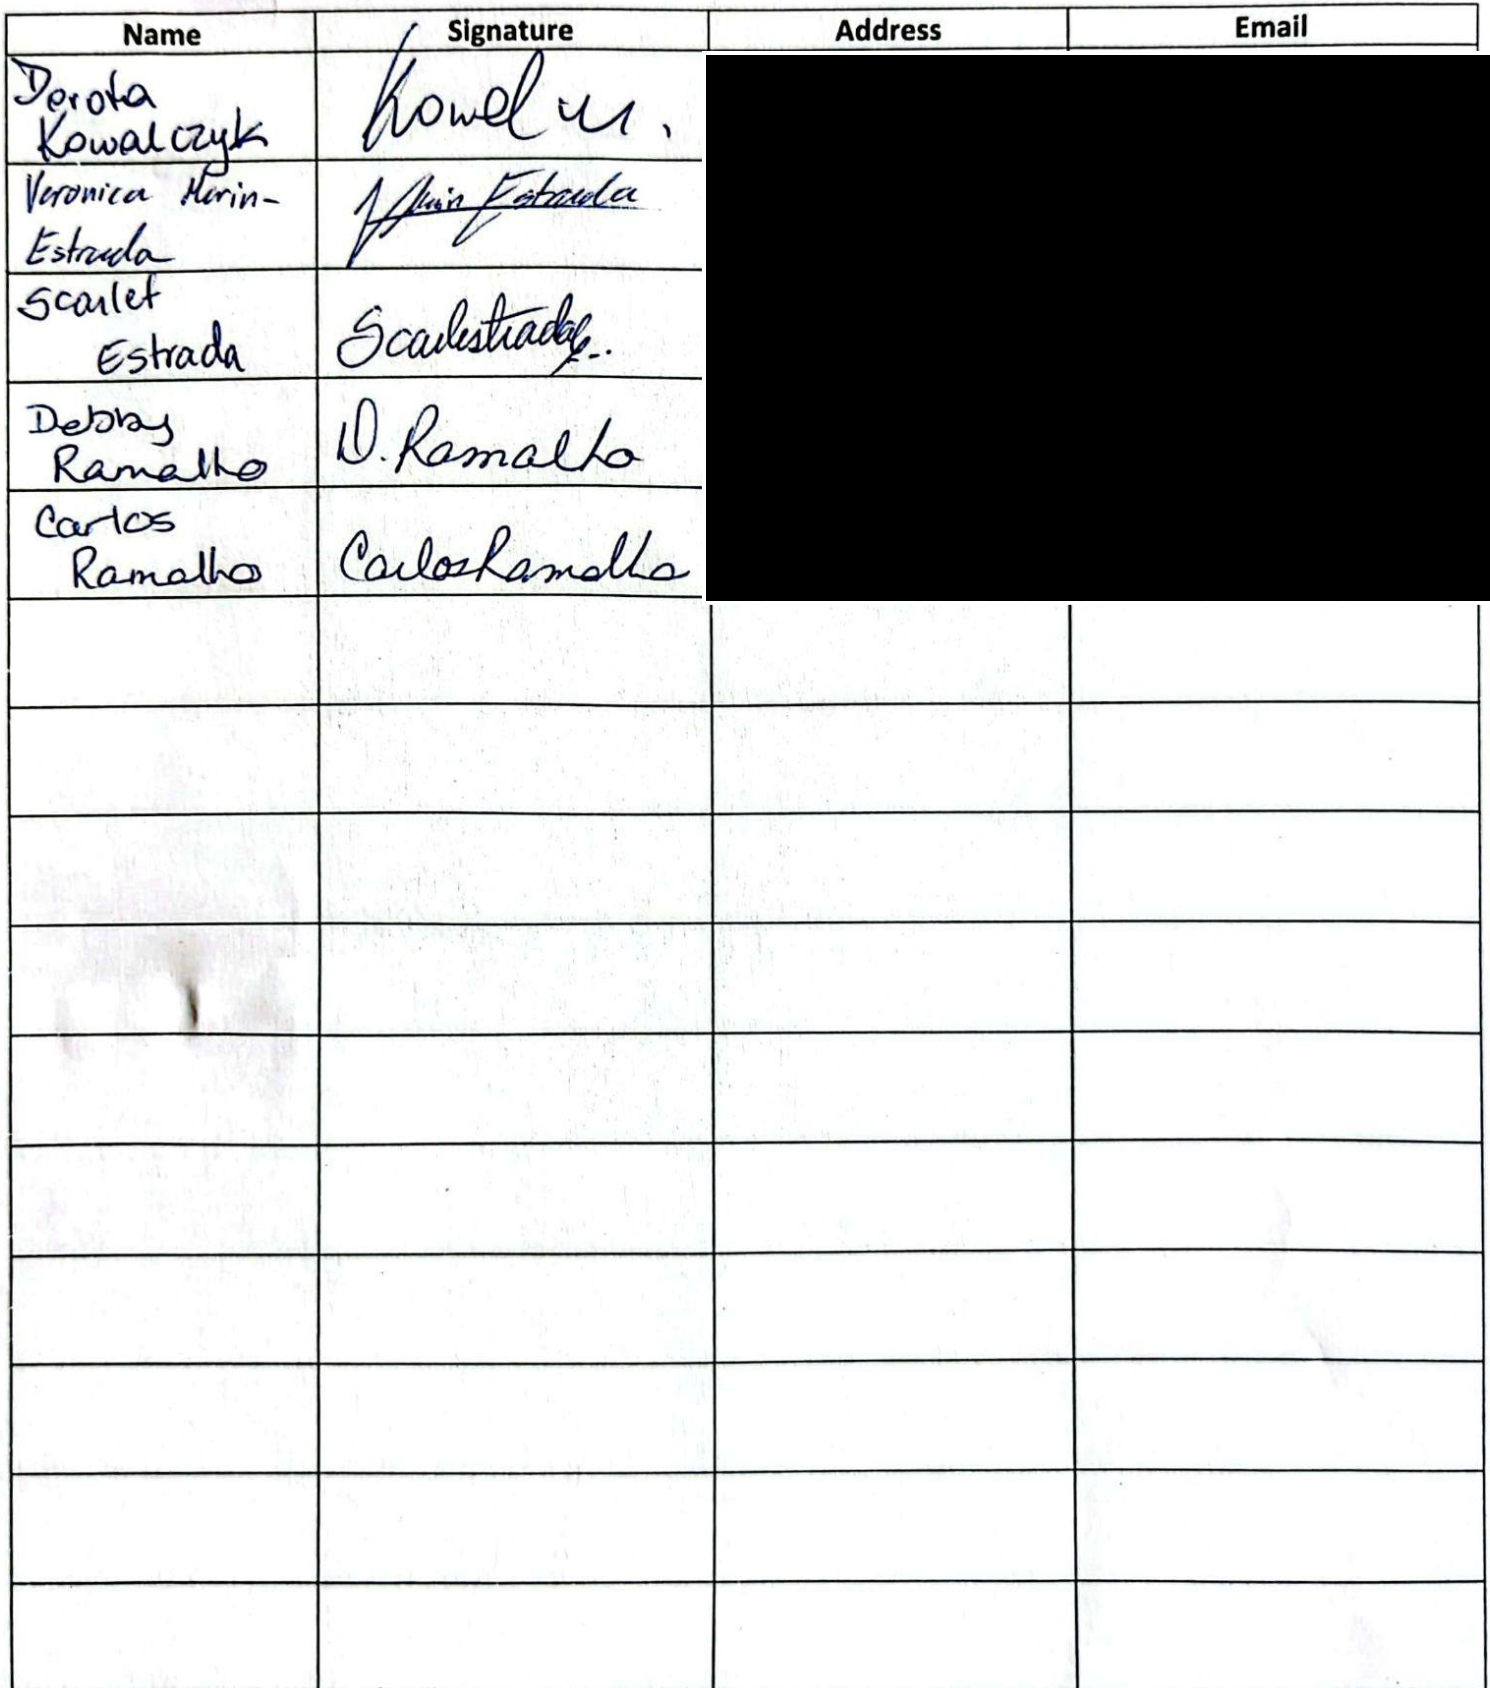 Name Signature Address Email
Dorota
Kowalczyk
Veronica Marin-
Estrada
Estrada
Scarlet
Estrada
Debby
Ramalho D. Ramalho
Carlos
Ramalho Carlos Ramalho